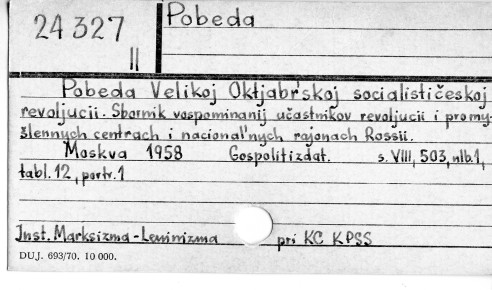 24 327
II
Pobeda
Pobeda Velikoj Oktjabŕskoj socialističeskoj
revoljucii. Sbornik vospominanij učastnikov revoljucii i promy-
šlennych centrach i nacional'nych rajonach Rossii.
Moskva 1958 Gospolitizdat. s. VIII, 503, nlb.1,
tabl. 12, portr. 1
Inst. Marksizma-Leninizma pri KC KPSS
DUJ. 693/70. 10 000.